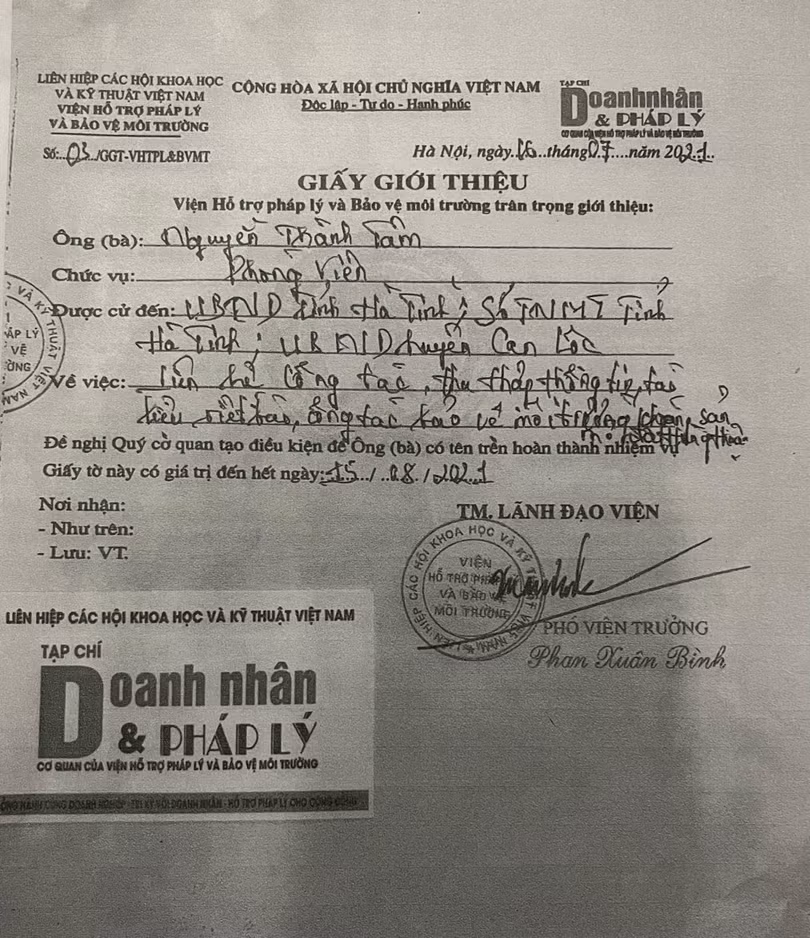 LIÊN HIỆP CÁC HỘI KHOA HỌC
VÀ KỸ THUẬT VIỆT NAM
VIỆN HỖ TRỢ PHÁP LÝ
VÀ BẢO VỆ MÔI TRƯỜNG
Số:..03../GGT-VHTPL&BVMT
CỘNG HÒA XÃ HỘI CHỦ NGHĨA VIỆT NAM
Độc lập - Tự do - Hạnh phúc
TẠP CHÍ
Doanh nhân
& PHÁP LÝ
CƠ QUAN CỦA VIỆN HỖ TRỢ PHÁP LÝ VÀ BẢO VỆ MÔI TRƯỜNG
Hà Nội, ngày..16..tháng07....năm 2021..
GIẤY GIỚI THIỆU
Viện Hỗ trợ pháp lý và Bảo vệ môi trường trân trọng giới thiệu:
Ông (bà): Nguyễn Thành Tâm
Chức vụ: Phóng Viên
Được cử đến: UBND tỉnh Hà Tĩnh; Sở TNMT Tỉnh
Hà Tĩnh; UBND huyện Can Lộc
Về việc: Liên hệ công tác, thu thập thông tin, tài
liệu viết bài, công tác bảo vệ môi trường, khoáng sản
Đề nghị Quý cơ quan tạo điều kiện để Ông (bà) có tên trên hoàn thành nhiệm vụ
Giấy tờ này có giá trị đến hết ngày: 15../..08./2021
Nơi nhận:
- Như trên:
- Lưu: VT.
TM. LÃNH ĐẠO VIỆN
LIÊN HIỆP CÁC HỘI KHOA HỌC VÀ KỸ THUẬT VIỆT NAM
VIỆN
HỖ TRỢ PHÁP LÝ
VÀ BẢO VỆ
MÔI TRƯỜNG
PHÓ VIỆN TRƯỞNG
Phan Xuân Bình
LIÊN HIỆP CÁC HỘI KHOA HỌC VÀ KỸ THUẬT VIỆT NAM
TẠP CHÍ
Doanh nhân
& PHÁP LÝ
CƠ QUAN CỦA VIỆN HỖ TRỢ PHÁP LÝ VÀ BẢO VỆ MÔI TRƯỜNG
ĐỒNG HÀNH CÙNG DOANH NGHIỆP - TRI KỶ VỚI DOANH NHÂN - HỖ TRỢ PHÁP LÝ CHO CỘNG ĐỒNG